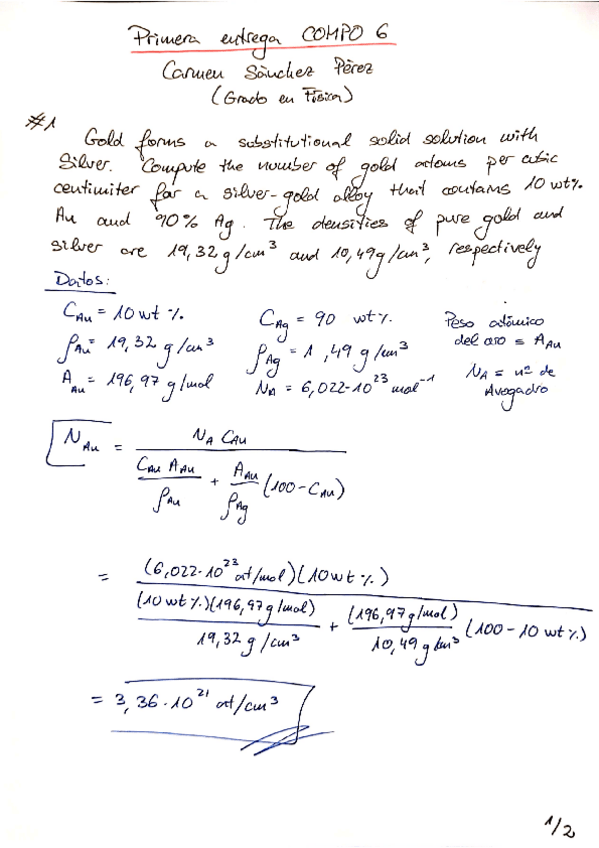 Primera entrega COMPO 6
Carmen Sánchez Pérez
(Grado en Física)
#1
Gold forms a substitutional solid solution with
Silver. Compute the number of gold atoms per cubic
centimiter for a silver-gold alloy that contains 10 wt%
Au and 90% Ag. The densities of pure gold and
silver are 19,32 g/cm³ and 10,49 g/cm³, respectively
Datos:
C_Au = 10 wt % C_Ag = 90 wt %. Peso atómico
ρ_Au = 19,32 g/cm³ ρ_Ag = 1 ,49 g/cm³ del oro = A_Au
A_Au = 196,97 g/mol N_A = 6,022·10²³ mol⁻¹ N_A = nº de
Avogadro
N_Au = N_A C_Au
C_Au A_Au / ρ_Au + A_Au / ρ_Ag (100 - C_Au)
= (6,022·10²³ at/mol)(10 wt %)
(10 wt %)(196,97 g/mol) / 19,32 g/cm³ + (196,97 g/mol) / 10,49 g/cm³ (100 - 10 wt %)
= 3,36·10²¹ at/cm³
1/2